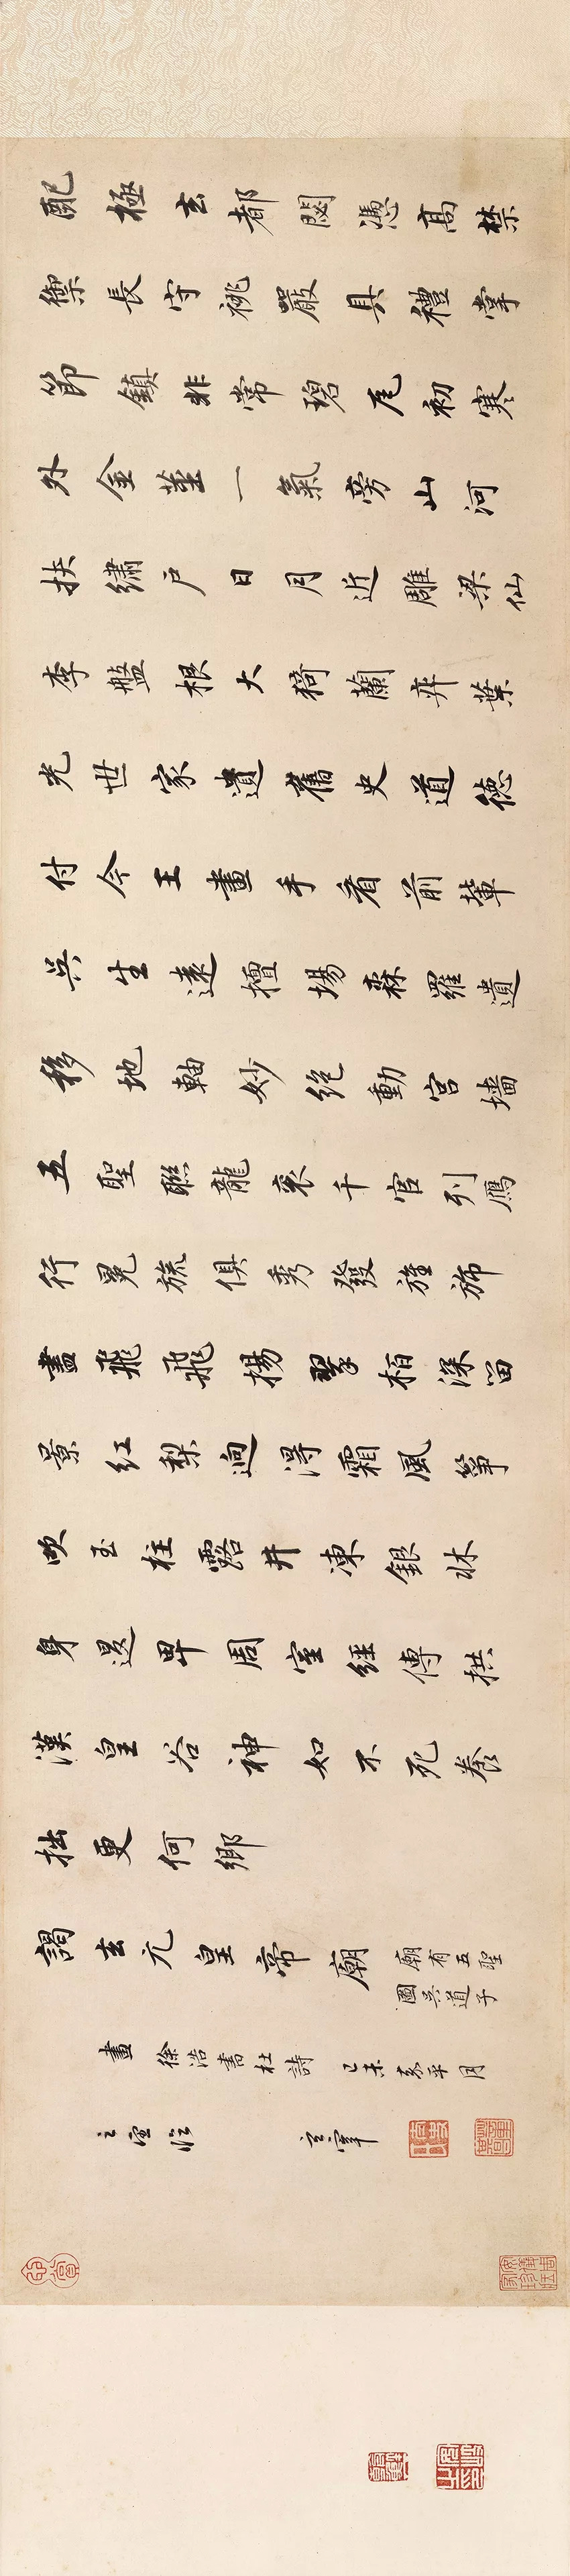 配極玄都閟憑高禁
禦長守祧嚴具禮掌
節鎮非常碧瓦初寒
外金莖一氣旁山河
扶繡戶日月近雕梁仙
李盤根大猗蘭奕葉
光世家遺舊史道德
付今王畫手看前輩
吳生遠擅場森羅遺
移地軸妙絕動宮墻
五聖聯龍袞千官引鴈
行冕旒俱秀發旌旆
盡飛飛揚翠柏深留
景紅梨迥得霜風箏
吹玉柱露井凍銀牀
身退卑周室經傳拱
漢皇谷神如不死養
拙更何鄉
謁玄元皇帝廟 廟有五聖
圖吳道子
畫 徐浩書杜詩 己未嘉平月
之望臨 玄宰